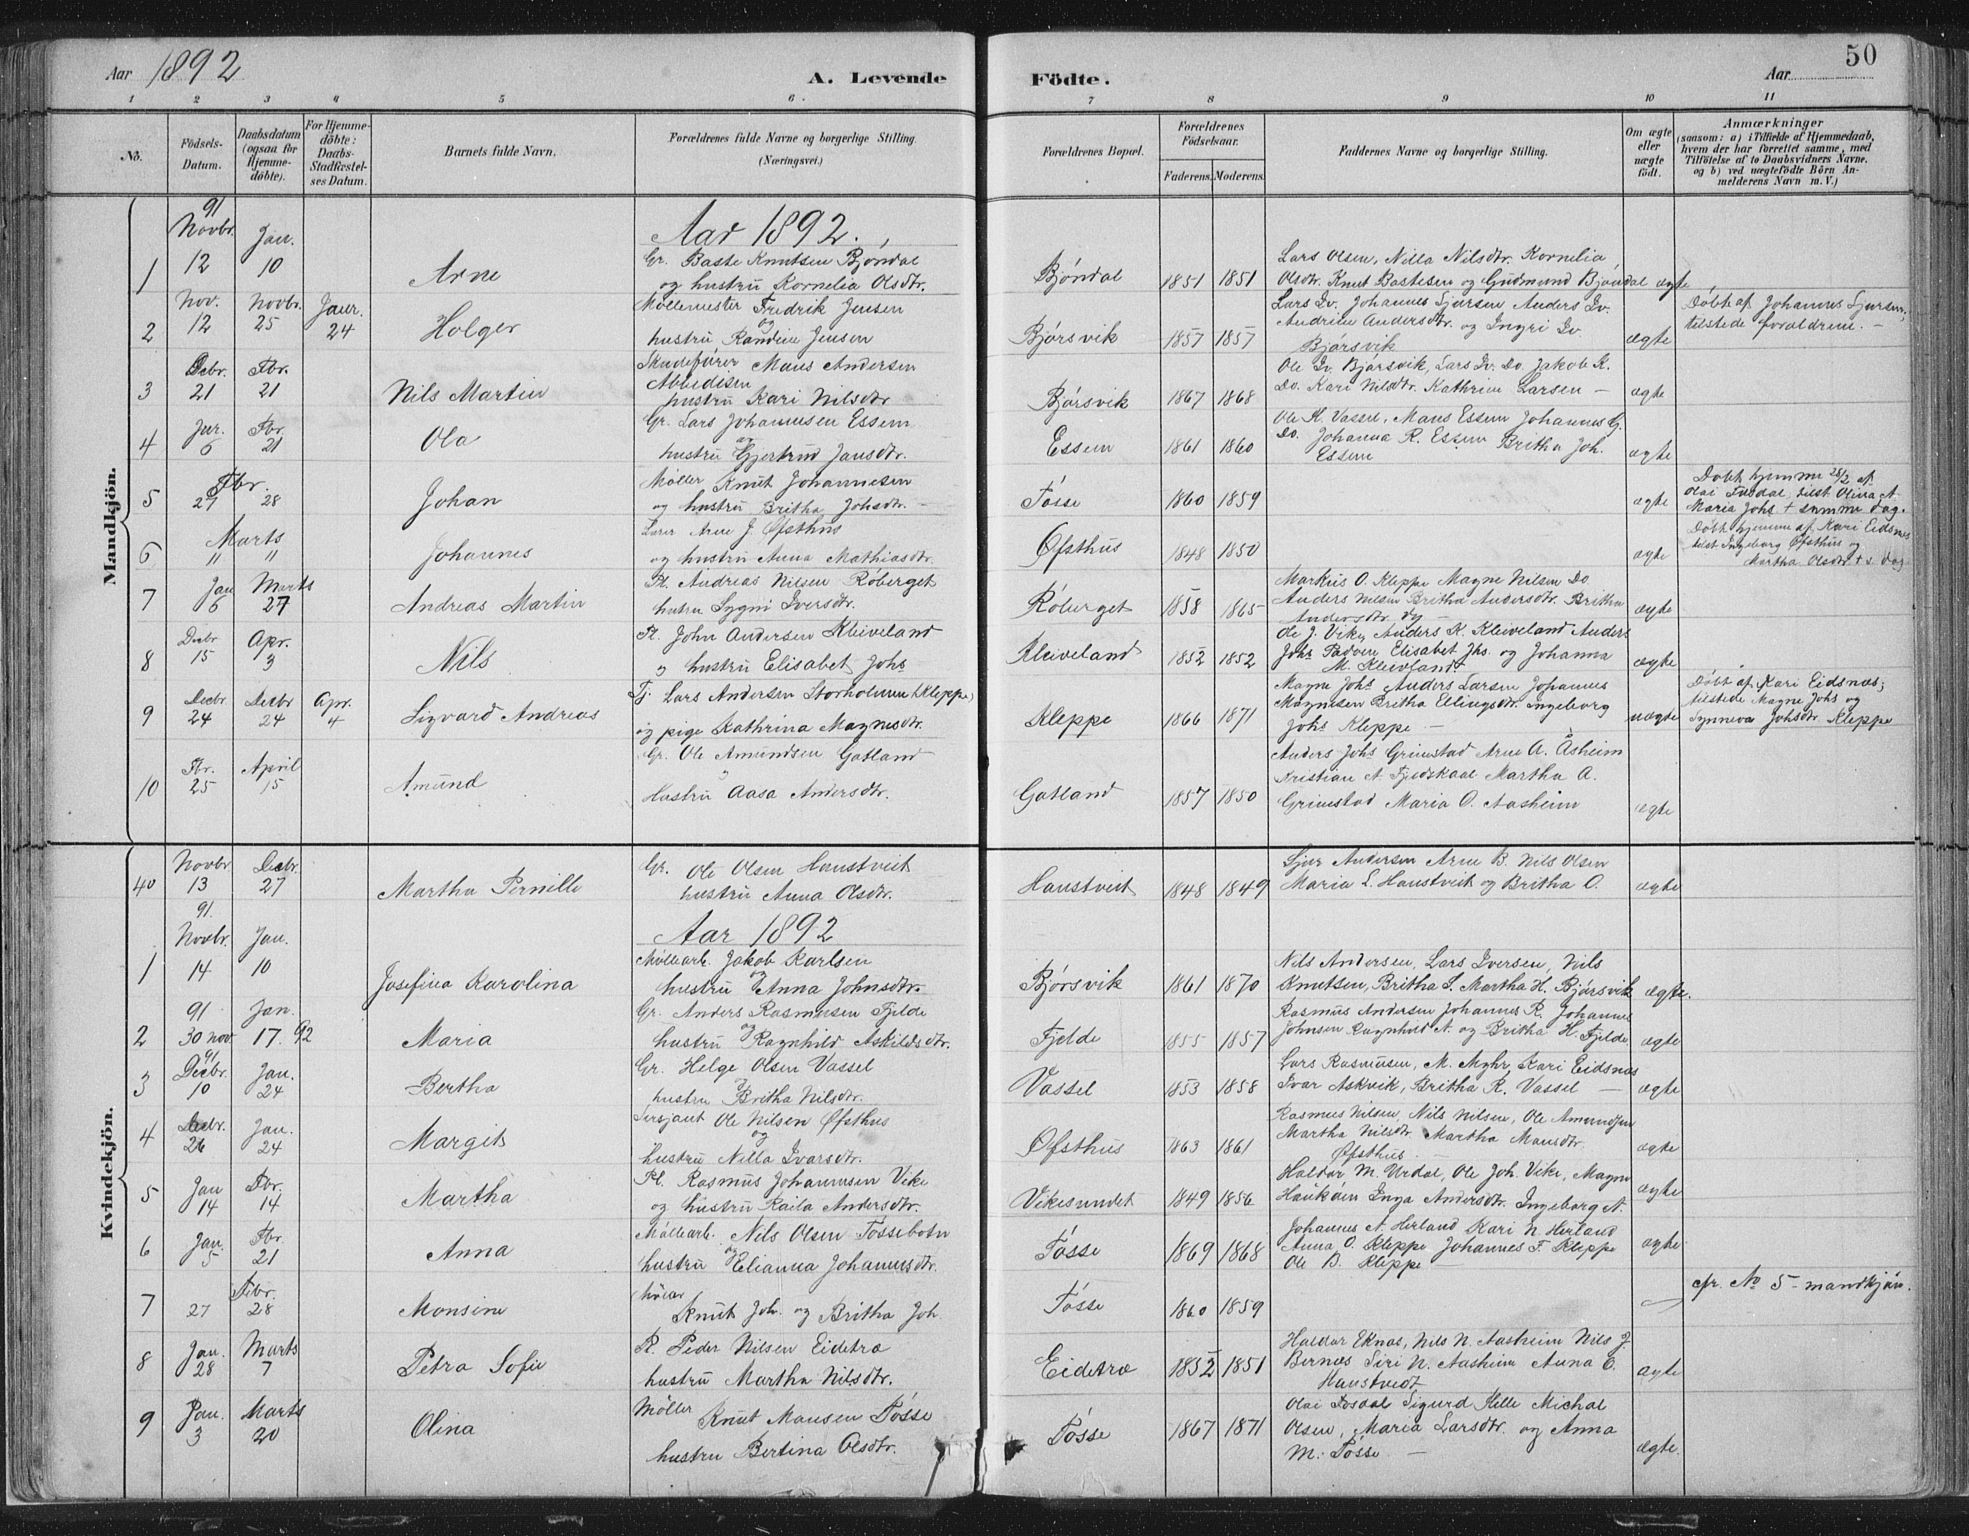 Aar 1892
A. Levende Födte.
Aar
50
1 2 3 4 5 6. 7 8 9 10 11
No.
Födsels-Datum.
Daabsdatum (ogsaa for Hjemme-döbte).
For Hjemme-döbte: Daabs-Stadfæstel-ses Datum.
Barnets fulde Navn.
Forældrenes fulde Navne og borgerlige Stilling. (Næringsvei.)
Forældrenes Bopæl.
Forældrenes Födselsaar.
Faderens. Moderens.
Faddernes Navne og borgerlige Stilling.
Om ægte eller uægte födt.
Anmærkninger
(saasom: a) i Tilfælde af Hjemmedaab, hvem der har forrettet samme, med Tilföielse af to Daabsvidners Navne. og b) ved uægtefödte Börn An-melderens Navn m. V.)
Mandkjön.
Aar 1892.
1 91 Novbr. 12 Jan. 10 Arne
Gr. Baste Knutsen Bjöndal
og hustru Kornelia Olsdtr.
Bjöndal 1851 1851
Lars Olsen, Nilla Nilsdtr. Kornelia
Olsdtr. Knut Bastesen og Gudmund Bjöndal ægte
2 Nov. 12 Novbr. 25 Janur. 24 Holger
Möllemester Fredrik Jensen
og
hustru Randine Jensen
Bjørsvik 1857 1857
Lars Iv. Johannes Sjursen Anders Iv.
Andrine Andersdtr. og Ingri Iv.
Bjørsvik ægte
Döbt af Johannes Sjursen,
tilstede forældrene. -
3 Decbr. 21 Fbr. 21 Nils Martin
Skudefører Mons Andersen
hustru Kari Nilsdtr
Bjørsvik 1867 1868
Ole Iv. Bjørsvik, Lars Iv. Do. Jakob K.
Do. Kari Nilsdtr. Kathrine Larsen - ægte
4 6 Fbr. 21 Ola
Gr. Lars Johannesen Essem
og
hustru Gjertrud Jansdtr.
Essem 1861 1860
Ole K. Vassel, Mons Essem Johannes G.
Do. Johanna R. Essem Britha Joh.
Essem ægte
5 Fbr. 27 28 Johan
Møller Knut Johannesen
og hustru Britha Johsdtr. -
Tøsse 1860 1859 ægte
Döbt hjemme 28/2 af
Olai Fosdal, tilst Olina A
Maria Johs † samme dag.
6 Marts " " Johannes
Lærer Arne J. Øfsthus
og hustru Anna Mathiasdtr.
Øfsthus 1848 1850 ægte
Döbt hjemme af Kari Eidsnes
tilst Ingeborg Øfsthus og
Martha Olsdtr † s. dag
7 Jan 6 Marts 27 Andreas Martin
Pl. Andreas Nilsen Röberget
hustru Sygni Iversdtr.
Röberget 1858 1865
Markus O. Kleppe Magne Nilsen Do
Anders Nilsen Britha Andersdtr. Britha
Andersdtr. ægte
8 Decbr 15 Apr. 3 Nils
Pl. John Andersen Kleiveland
og hustru Elisabet Johs
Kleiveland 1852 1852
Ole J. Vike, Anders K. Kleiveland Anders
Johs Elisabet Jhs. og Johanna
M. Kleiveland ægte
9 Decbr 24 Decbr 24 Apr. 4 Sigvard Andreas
Tj. Lars Andersen Storholmen (Kleppe)
og pige Kathrina Magnesdtr.
Kleppe 1866 1871
Magne Johs Anders Larsen Johannes
Magnesen Britha Ellingsdtr. Ingeborg
Johs Kleppe - uægte
Döbt af Kari Eidsnæs;
tilstede Magne Johs og
Synneva Johsdtr. Kleppe
10 Fbr. 25 April 15 Amund
Gr. Ole Amundsen Gatland
Hustru Aasa Andersdtr.
Gatland 1857 1850
Anders Johs Grimstad Arne A. Åsheim
Kristian A. Fjedskaal Martha A.
Grimstad Maria O. Aasheim ægte
Kvindekjön.
40 Novbr 13 91. Decbr. 27 Martha Pernille
Gr. Ole Olsen Haustveit
hustru Anna Olsdtr.
Haustveit 1848 1849
Sjur Andersen Arne B. Nils Olsen
Maria L. Haustveit og Britha O. ægte
Aar 1892
1 Novbr. 14 Jan. 10 Josefina Karolina
Møllearb. Jakob Karlsen
og
hustru Anna Johnsdtr.
Bjørsvik 1861 1870
Nils Andersen, Lars Iversen, Nils
Knutsen, Britha S. Martha H. Bjørsvik ægte.
2 91 30 nov. Jan. 17. 92 Maria
Gr. Anders Rasmusen Fjelde
og
hustru Ragnhild Askildsdtr.
Fjelde 1855 1857
Rasmus Andersen Johannes R. Johannes
Johnsen Ragnhild A. og Britha H. Fjelde. ægte
3 91 Decbr. 10 Jan. 24 Bertha
Gr. Helge Olsen Vassel
og
hustru Britha Nilsdtr.
Vassel 1853 1858
Lars Rasmusen, M. Myhr, Kari Eidsnæs
Ivar Askvik, Britha R. Vassel - ægte
4 Decbr. 26 Jan. 24 Margit
Sersjant Ole Nilsen Øfsthus
og
hustru Nilla Ivarsdtr.
Øfsthus 1863 1861
Rasmus Nilsen, Nils Nilsen, Ole Amundsen
Martha Nilsdtr. Martha Monsdtr.
Øfsthus ægte
5 Jan 14 Fbr. 14 Martha
Pl. Rasmus Johannesen Vike
og hustru Raila Andersdtr.
Vikesundet 1849 1856
Haldor M. Urdal, Ole Joh. Vike, Magne
Haukåm Inga Andersdtr. Ingeborg A. ægte
6 Jan. 5 Fbr. 21 Anna
Møllearb. Nils Olsen Tøssebotn
og
hustru Elianna Johannesdtr.
Tøsse 1869 1868
Johannes A. Herland Kari N. Herland
Anna O. Kleppe Johannes F. Kleppe
Ole B. Kleppe - ægte
7 Febr. 27 28 Monsine
Møller
Knut Joh. og Britha Joh.
Tøsse 1860 1859
cfr. No 5 - mandkjön.
8 Jan. 28 Marts 7 Petra Sofie
Peder Nilsen Eidetræ
hustru Martha Nilsdtr.
Eidetræ 1852 1851
Haldor Eknæs, Nils N. Aasheim Nils J.
Bernes Siri N. Aasheim Anna O.
Haustvedt ægte
9 Jan. 3 Marts 20 Olina
Møller Knut Monsen Tøsse
hustru Bertina Olsdtr.
Tøsse 1867 1871
Olai Fosdal Sigurd Helle Michal
Olsen, Maria Larsdtr. og Anna
M. Tøsse - ægte